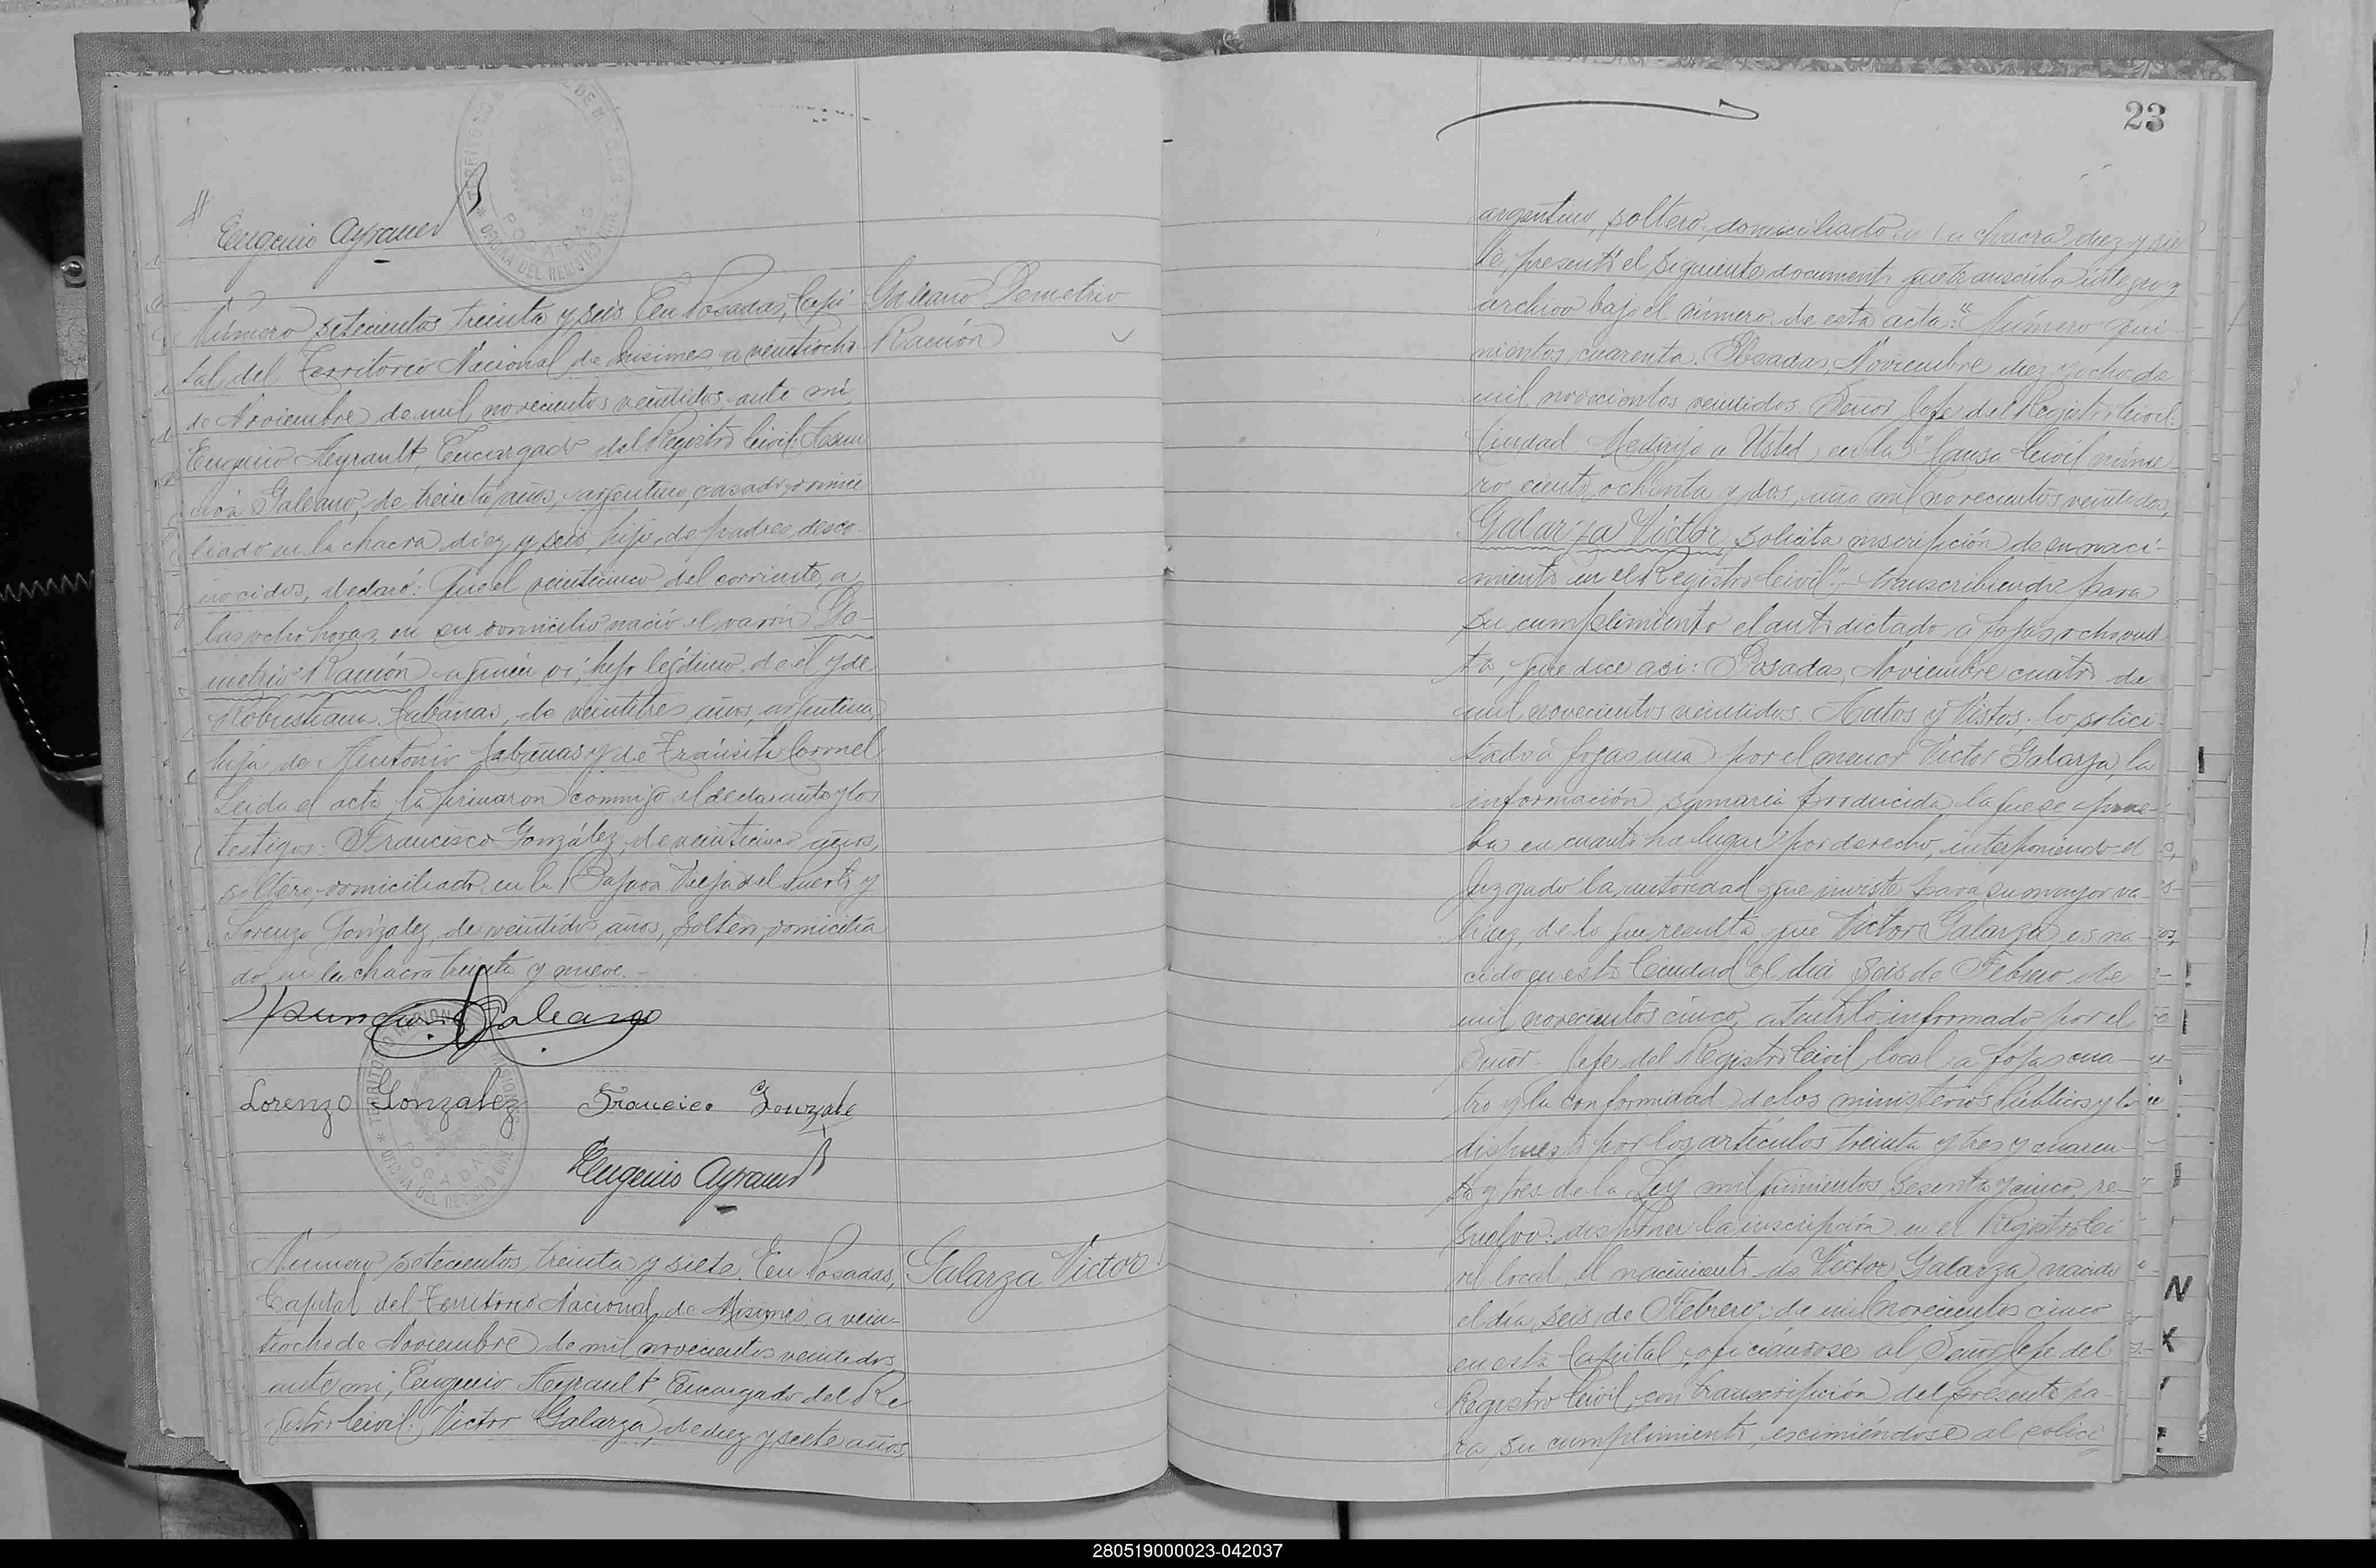 Eugenio Ayrault
Número setecientos treinta y seis. En Posadas, Capi-
tal del Territorio Nacional de Misiones, a veintiocho
de Noviembre de mil novecientos veintidos, ante mi,
Eugenio Ayrault, Encargado del Registro Civil: Asun
ción Galeano, de treinta años, argentino, casado, domici
liado en la chacra diez y seis, hijo de padres desco-
nocidos, declaró: Que el veinticinco del corriente, a
las ocho horas, en su domicilio nació el varón De-
metrio Ramón a quien vi, hijo legítimo de el y de
Robustiana Cabañas, de veintitres años, argentina,
hija de Antonio Cabañas y de Tránsita Coronel.
Leida el acta, la firmaron conmigo el declarante y los
testigos: Francisco González, de veinticinco años,
soltero, domiciliado en la Bajada Vieja del Puerto y
Lorenzo González, de veintidos años, soltero, domicilia
do en la chacra treinta y nueve.-
Galeano Demetrio
Ramón
Asunción Galeano
Lorenzo Gonzalez Francisco Gonzale
Eugenio Ayrault
TERRITORIO NACIONAL DE MISIONES
OFICINA DEL REGISTRO CIVIL
POSADAS
Número setecientos treinta y siete. En Posadas,
Capital del Territorio Nacional de Misiones, a vein-
tiocho de Noviembre de mil novecientos veintidos,
ante mi, Eugenio Ayrault, Encargado del Re
gistro Civil: Victor Galarza, de diez y siete años,
Galarza Victor
23
argentino, soltero, domiciliado en la chacra diez y sie
te, presentó el siguiente documento que transcribo íntegro y
archivo bajo el número de esta acta: "Número qui-
nientos cuarenta. Posadas, Noviembre diez y ocho de
mil novecientos veintidos. Señor Jefe del Registro Civil.
Ciudad. Me dirijo a Usted en la "Causa Civil núme-
ro ciento ochenta y dos, año mil novecientos veintidos,
Galarza Victor, solicita inscripción de su naci-
miento en el Registro Civil", transcribiendo para
su cumplimiento el auto dictado a fojas ocho vuel
ta, que dice asi: Posadas, Noviembre cuatro de
mil novecientos veintidos. Autos y Vistos: lo solici-
tado a fojas una por el menor Victor Galarza, la
información sumaria producida la que se aprue-
ba en cuanto ha lugar por derecho, interponiendo el
Juzgado la autoridad que inviste para su mayor va-
lidez, de lo que resulta que Victor Galarza es na-
cido en esta Ciudad el dia seis de Febrero de
mil novecientos cinco, atento lo informado por el
Señor Jefe del Registro Civil local a fojas cua-
tro y la conformidad de los ministerios Públicos y lo
dispuesto por los artículos treinta y tres y cuaren-
ta y tres de la Ley mil quinientos sesenta y cinco, re-
suelvo: disponer la inscripción en el Registro Ci
vil local, el nacimiento de Victor Galarza nacido
el día seis de Febrero de mil novecientos cinco
en esta Capital, oficiándose al Señor Jefe del
Registro Civil, con transcripción del presente pa-
ra su cumplimiento, eximiéndose al solici
N
X
280519000023-042037